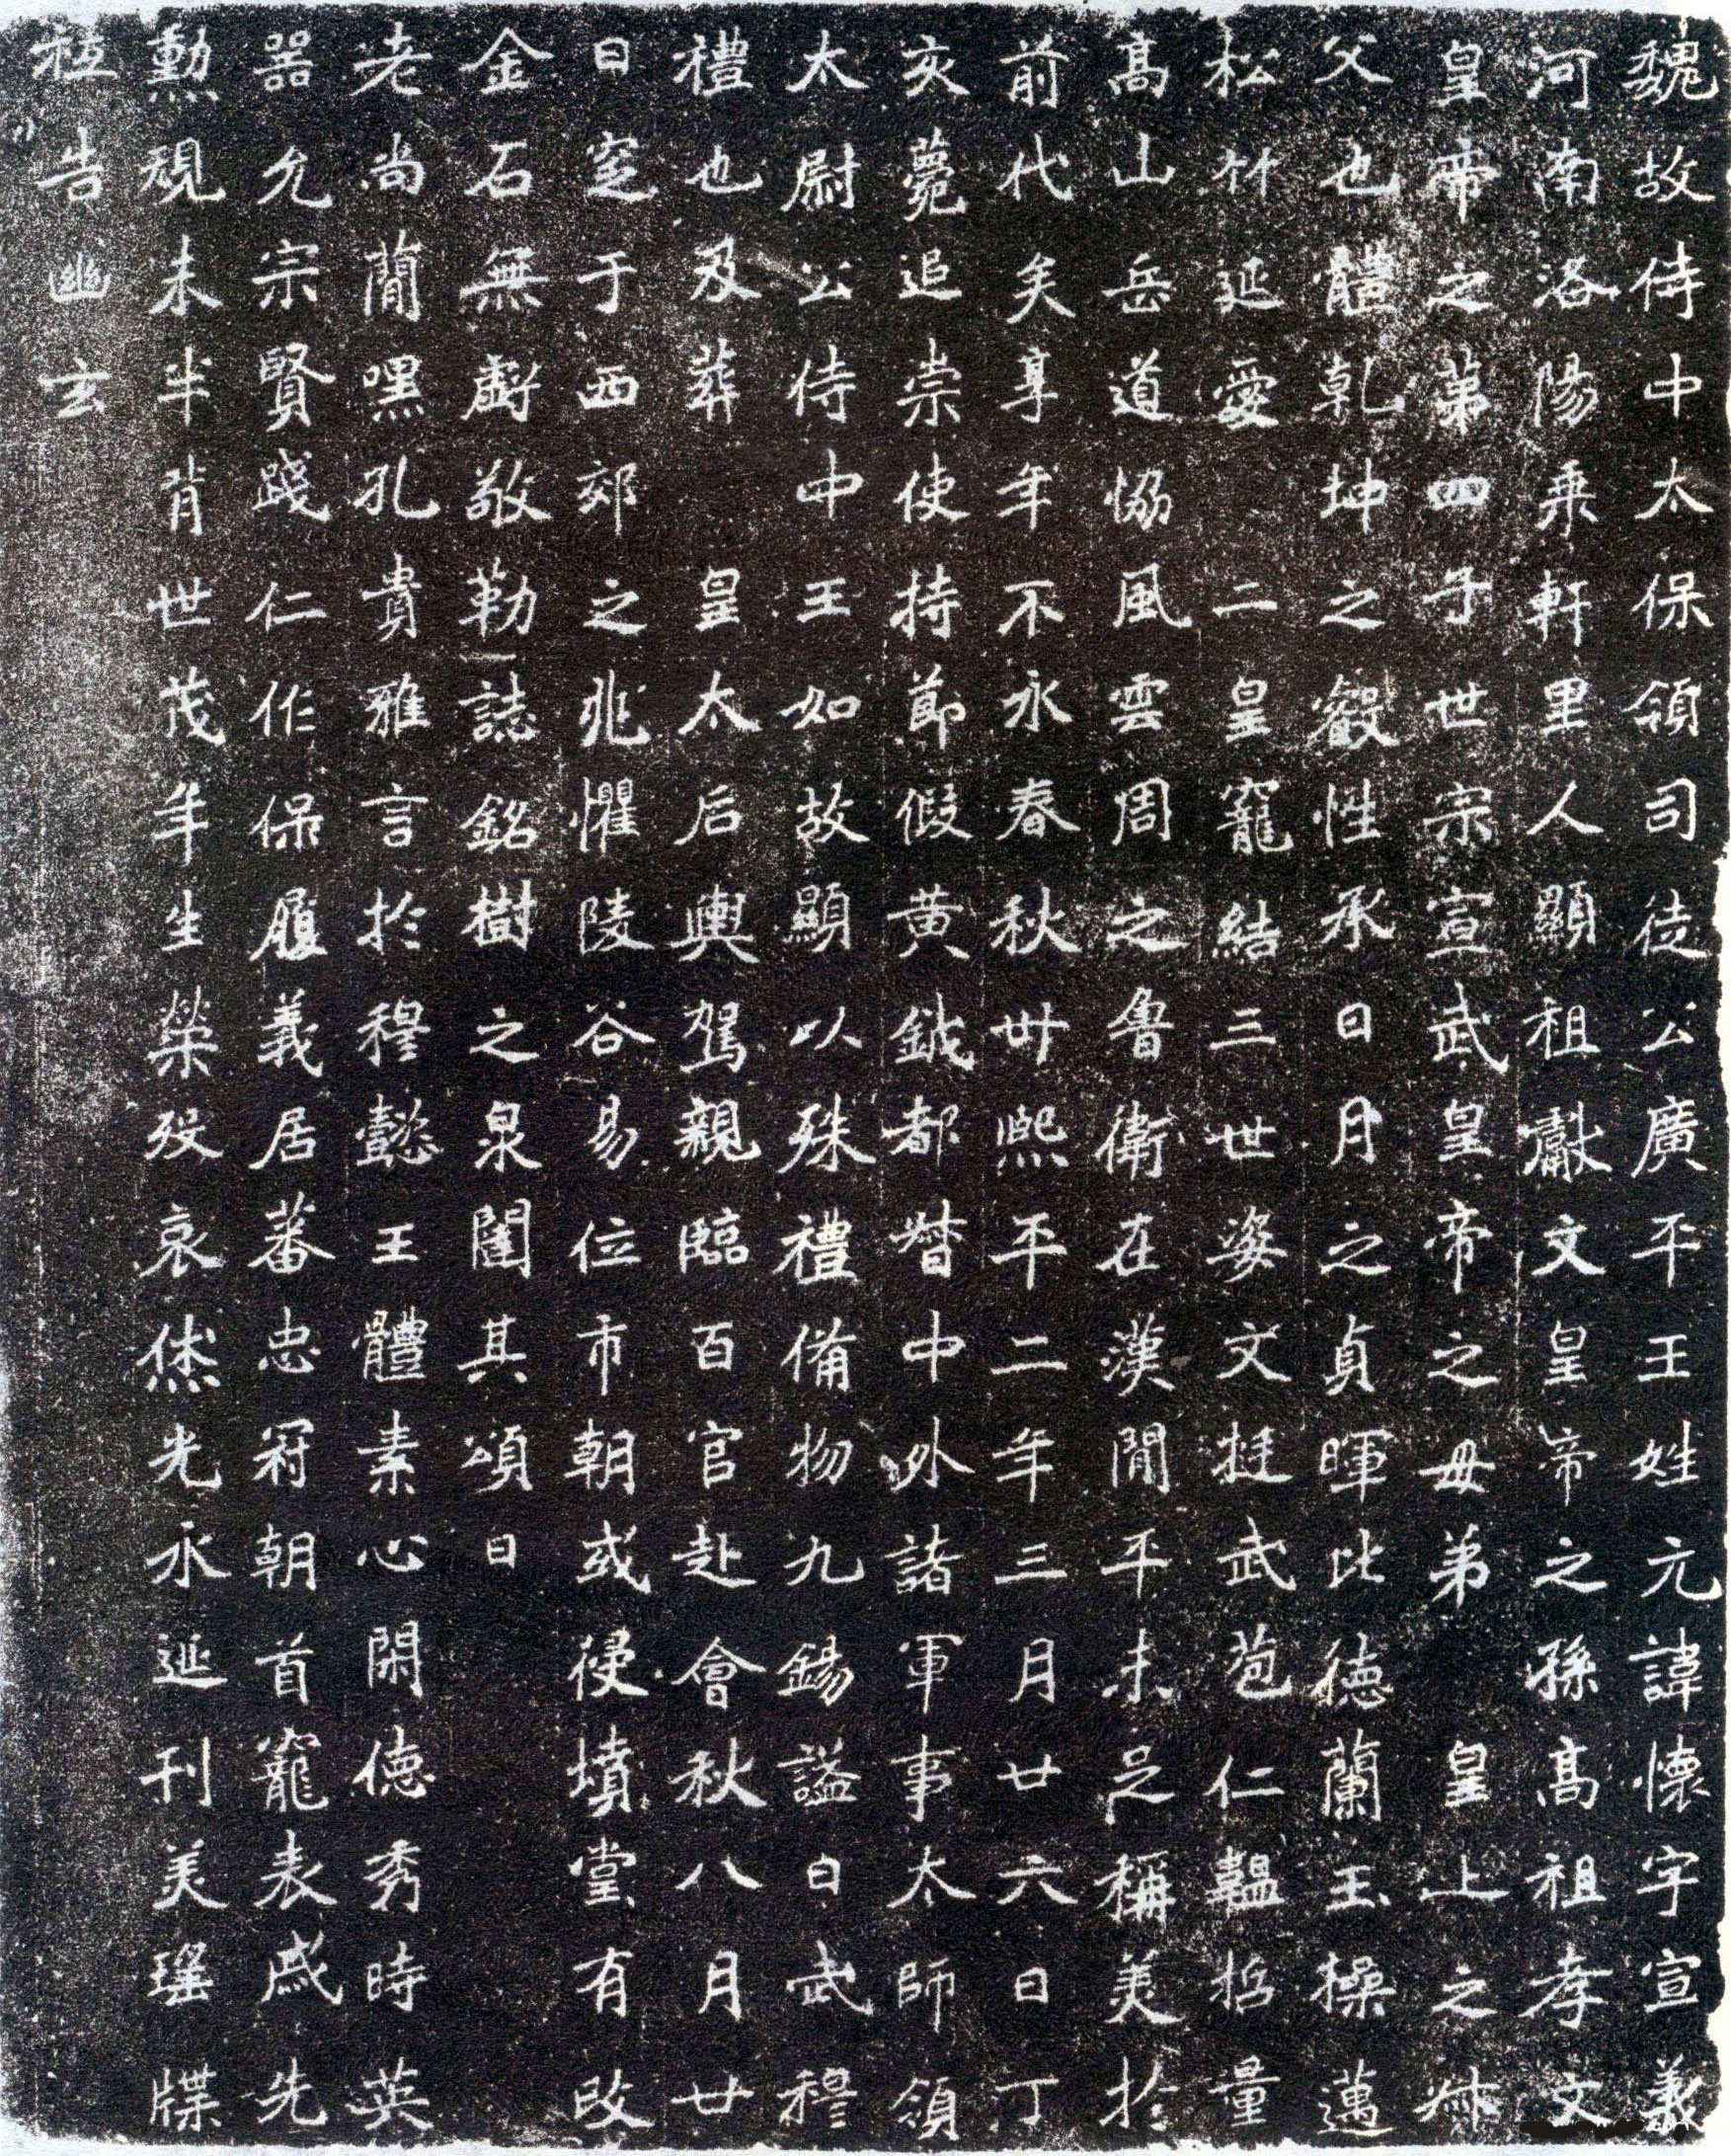 魏故侍中太保領司徒公廣平王姓元諱懷字宣義
河南洛陽乘軒里人顯祖獻文皇帝之孫高祖孝文
皇帝之第四子世宗宣武皇帝之母弟 皇上之叔
父也體乾坤之叡性承日月之貞暉比德蘭玉操邁
松竹延愛 二皇寵結三世姿文挺武苞仁韞哲量
高山岳道協風雲周之魯衛在漢閒平未足稱美於
前代矣享年不永春秋卅熙平二年三月廿六日丁
亥薨追崇使持節假黃鉞都督中外諸軍事太師領
太尉公侍中王如故顯以殊禮備物九錫謚曰武穆
禮也及葬 皇太后輿駕親臨百官赴會秋八月廿
日窆于西郊之兆懼陵谷易位市朝或侵墳堂有改
金石無虧敬勒誌銘樹之泉闥其頌曰
老尚簡嘿孔貴雅言於穆懿王體素心閑德秀時英
器允宗賢踐仁作保履義居蕃忠冠朝首寵表戚先
勳規未半背世茂年生榮歿哀休光永延刊美瑤牒
祗告幽玄